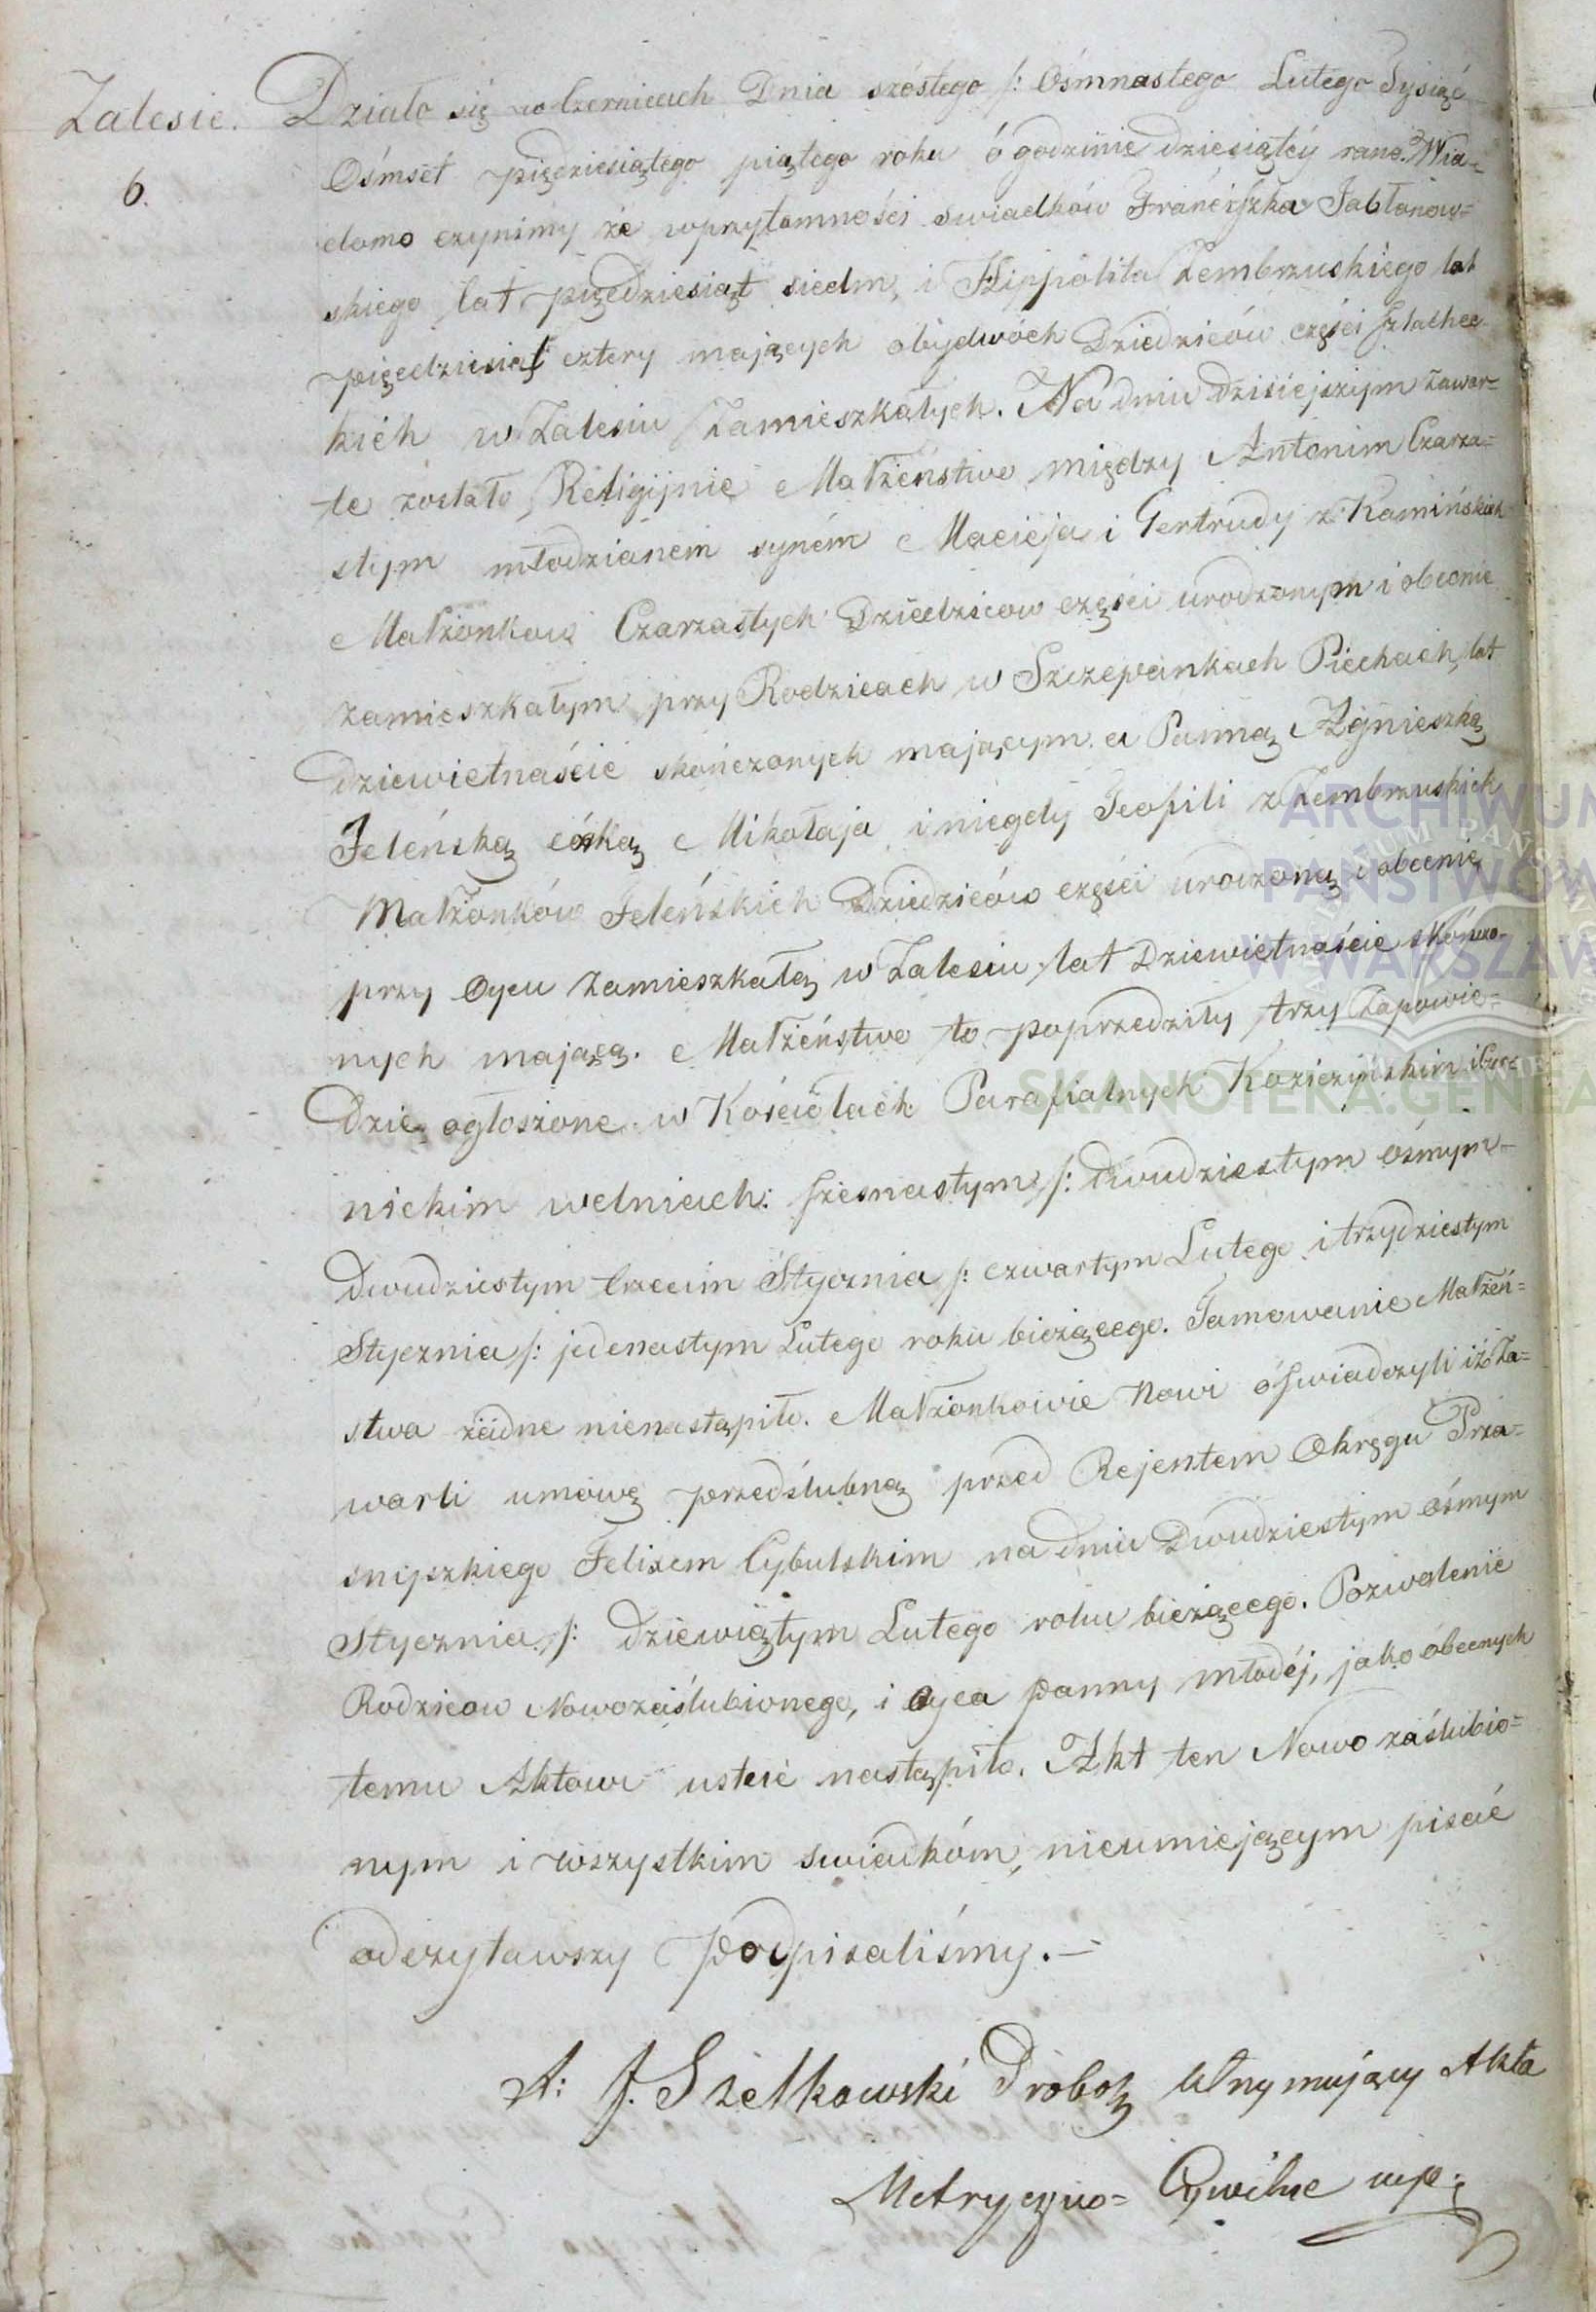 Zalesie. Działo się w Czernicach Dnia szóstego /: Ośmnastego Lutego Tysiąc
6. Ośmset pięćdziesiątego piątego roku ó godzinie dziesiątéy rano. Wia=
domo czynimy że wprzytomności swiadków Franciszka Jabłonow=
skiego lat pięćdziesiąt siedm, i Hippolita Zembrzuskiego lat
pięćdziesiąt cztery mających obydwóch Dziedziców części szlachec-
kich w Zalesiu Zamieszkałych. Na dniu dzisiejszym zawar-
te zostało Religijnie Małżeństwo między Antonim Czarza=
stym młodzianem synem Macieja i Gertrudy z Kamińskich
Małżonków Czarzastych Dziedziców części urodzonym i obecnie
zamieszkałym przy Rodzicach w Szczepankach Piechach, lat
dziewietnaście skończonych mającym a Panną Agnieszką
Jeleńską córką Mikołaja i niegdy Teofili z Zembrzuskich
Małżonków Jeleńskich Dziedziców części urodzoną i obecnie
przy Oycu zamieszkałą w Zalesiu, lat Dziewietnaście skończo-
nych mającą. Małżeństwo to poprzedziły trzy Zapowie=
dzie ogłoszone w Kościołach Parafialnych Koziczyńskim i Czer=
nickim wdniach: szesnastym /: dwudziestym ósmym
Dwudziestym trzecim Stycznia /: czwartym Lutego i trzydziestym
Stycznia /: jedenastym Lutego roku bieżącego. Tamowanie Małżeń=
stwa żadne nienastąpiło. Małżonkowie Nowi óświadczyli iż Za=
warli umowę przedślubną przed Rejentem Okręgu Prza=
snyszkiego Felixem Cybulskim na dniu Dwudziestym ósmym
Stycznia /: dziewiątym Lutego roku bieżącego. Pozwolenie
Rodziców Nowozaślubionego, i oyca panny młodéj, jako óbecnych
temu Aktowi ustnie nastąpiło. Akt ten Nowo zaślubio=
nym i wszystkim swiadkóm, nieumiejącym pisać
odczytawszy podpisaliśmy.—
X: J. Szelkowski Probosz utrzymujący Akta
Metryczno= Cywilne mp.
ARCHIWUM
PAŃSTWOW
W WARSZAW
SKANOTEKA.GENEA